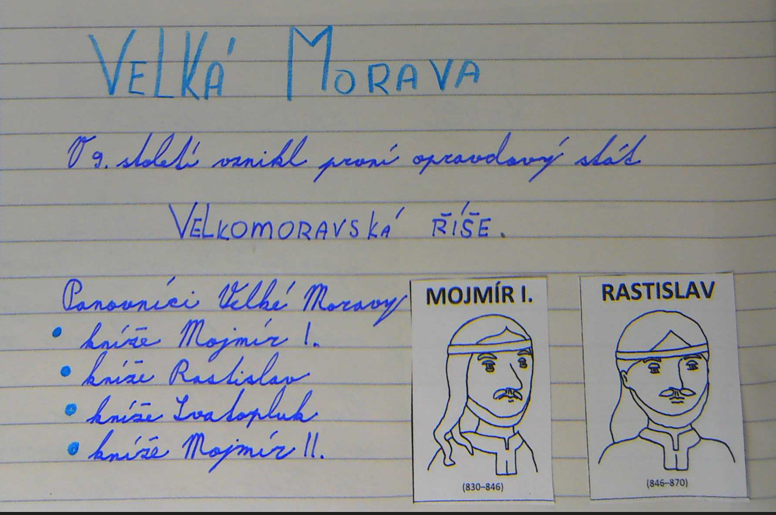 VELKÁ MORAVA
V 9. století vznikl první opravdový stát
VELKOMORAVSKÁ ŘÍŠE.
Panovníci Velké Moravy
• kníže Mojmír I.
• kníže Rastislav
• kníže Svatopluk
• kníže Mojmír II.
MOJMÍR I.
(830–846)
RASTISLAV
(846–870)